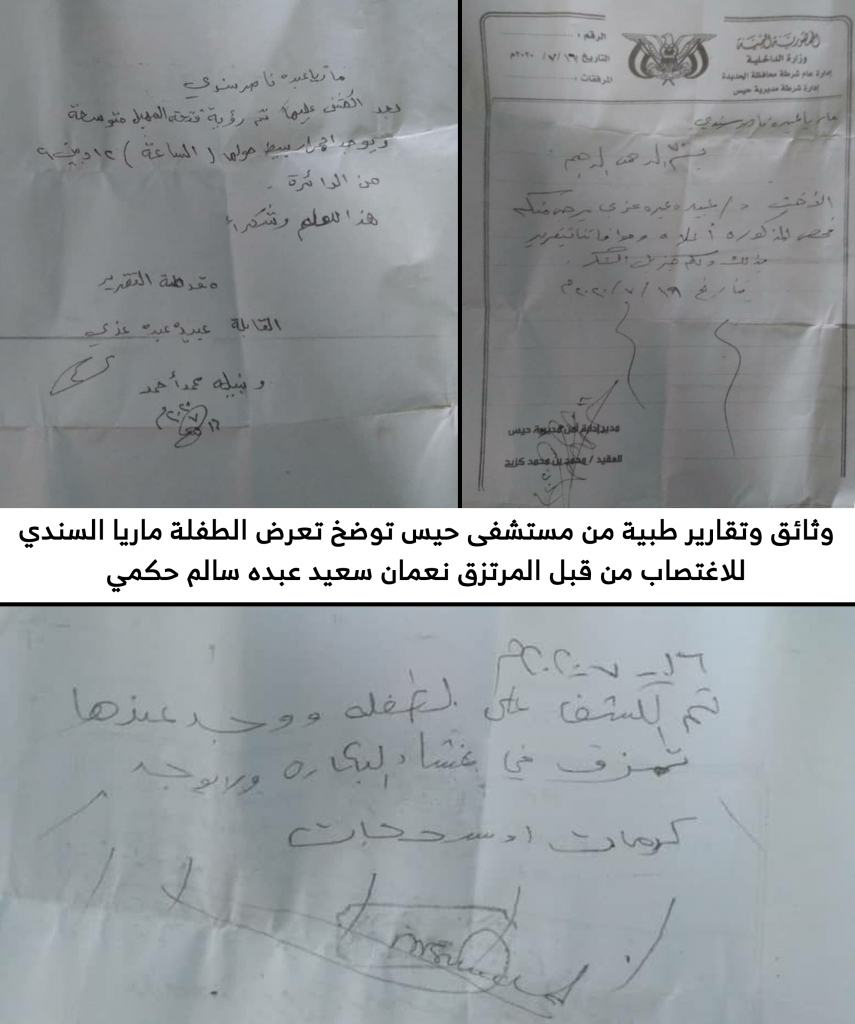 الجمهورية اليمنية
وزارة الداخلية
إدارة عام شرطة محافظة الحديدة
إدارة شرطة مديرية حيس
الرقم :
التاريخ ١٦/ ٧/ ٢٠٢٠م
المرفقات :
ماريا عبده ناصر سندي
بسم الله الرحمن الرحيم
الأخت د/ عبيده عبده عزي يرجى منكم
فحص المذكوره أعلاه وموافاتنا بتقرير
بذلك ولكم جزيل الشكر .
بتاريخ ١٦/ ٧/ ٢٠٢٠م
مدير إدارة أمن مديرية حيس
العقيد / محمد بن محمد كزيح
ماريا عبده ناصر سندي
بعد الكشف عليها تم رؤية فتحة المهبل متوسعة
ويوجد احمرار بسيط حولها ( الساعة ) ١٢ وبين ٩
من الدائرة .
هذا للعلم وشكراً
مقدمة التقرير
القابلة عبيده عبده عزي
و نبيله محمد أحمد
١٦/٧/٢٠٢٠م
وثائق وتقارير طبية من مستشفى حيس توضخ تعرض الطفلة ماريا السندي
للاغتصاب من قبل المرتزق نعمان سعيد عبده سالم حكمي
١٦-٧-٢٠٢٠م
تم الكشف على الطفله ووجد عندها
تمزق في غشاء البكاره ولايوجد
كدمات او سحجات